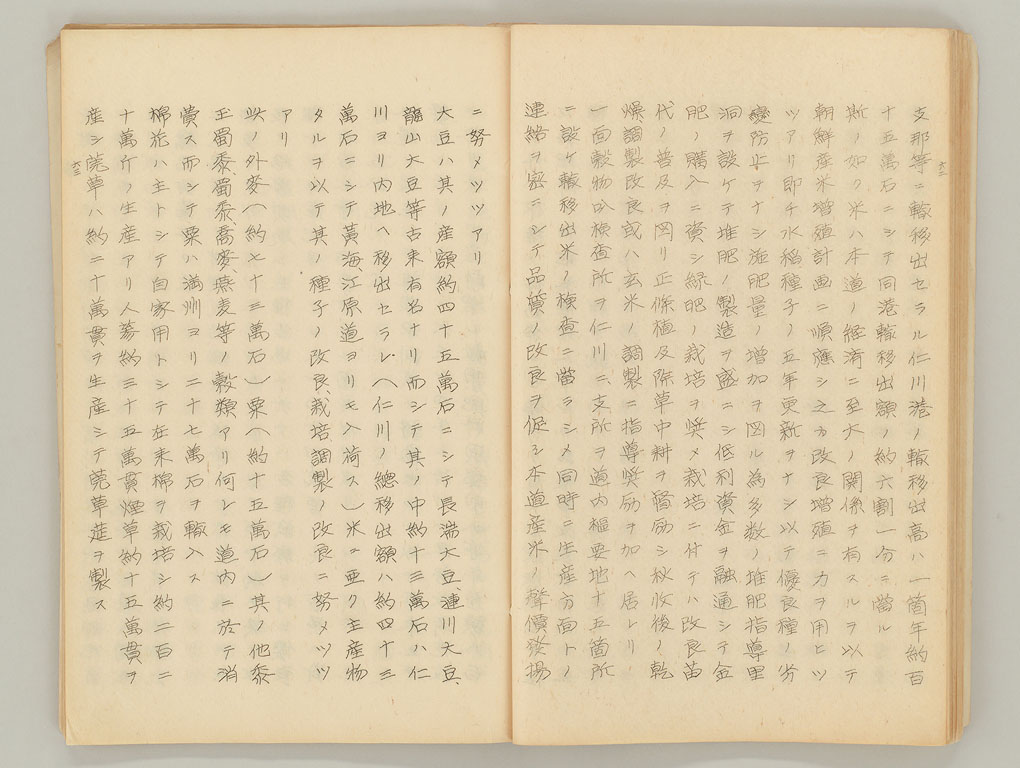 支那等ニ輸移出セラル仁川港ノ輸移出高ハ一箇年約百
十五萬石ニシテ同港輸移出額ノ約六割一分ニ當ル
斯ノ如ク米ハ本道ノ經濟ニ至大ノ關係ヲ有スルヲ以テ
朝鮮産米增殖計画ニ順應シ之カ改良增殖ニ力ヲ用ヒツ
ツアリ即チ水稻種子ノ五年更新ヲナシ以テ優良種ノ劣
變防止ヲナシ施肥量ノ增加ヲ図ル為多数ノ堆肥指導里
洞ヲ設ケテ堆肥ノ製造ヲ盛ニシ低利資金ヲ融通シテ金
肥ノ購入ニ資シ緑肥ノ栽培ヲ奨メ栽培ニ付テハ改良苗
代ノ普及ヲ図リ正條植及除草中耕ヲ督励シ秋收後ノ乾
燥調製改良或ハ玄米ノ調製ニ指導奨励ヲ加ヘ居レリ
一面穀物ハ検查所ヲ仁川ニ、支所ヲ道内樞要地十五箇所
ニ設ケ輸移出米ノ検查ニ當ラシメ同時ニ生産方面トノ
連絡ヲ密ニシテ品質ノ改良ヲ促シ本道産米ノ聲價發揚
六二
ニ努メツツアリ
大豆ハ其ノ産額約四十五萬石ニシテ長湍大豆漣川大豆、
龍山大豆等古来有名ナリ而シテ其ノ中約十三萬石ハ仁
川ヨリ内地ヘ移出セラレ（仁川ノ總移出額ハ約四十三
萬石ニシテ黃海、江原道ヨリモ入荷ス）米ニ亜ク主産物
タルヲ以テ其ノ種子ノ改良栽培調製ノ改良ニ努メツツ
アリ
此ノ外麥（約七十三萬石）粟（約十五萬石）其ノ他黍
玉蜀黍、蜀黍、蕎麥、燕麦等ノ穀類アリ何レモ道内ニ於テ消
費ス而シテ粟ハ満洲ヨリ二十七萬石ヲ輸入ス
棉花ハ主トシテ自家用トシテ在来棉ヲ栽培シ約二百二
十萬斤ノ生産アリ人蔘約三十五萬貫煙草約十五萬貫ヲ
産シ莞草ハ約二十萬貫ヲ生産シテ莞草莚ヲ製ス
六三